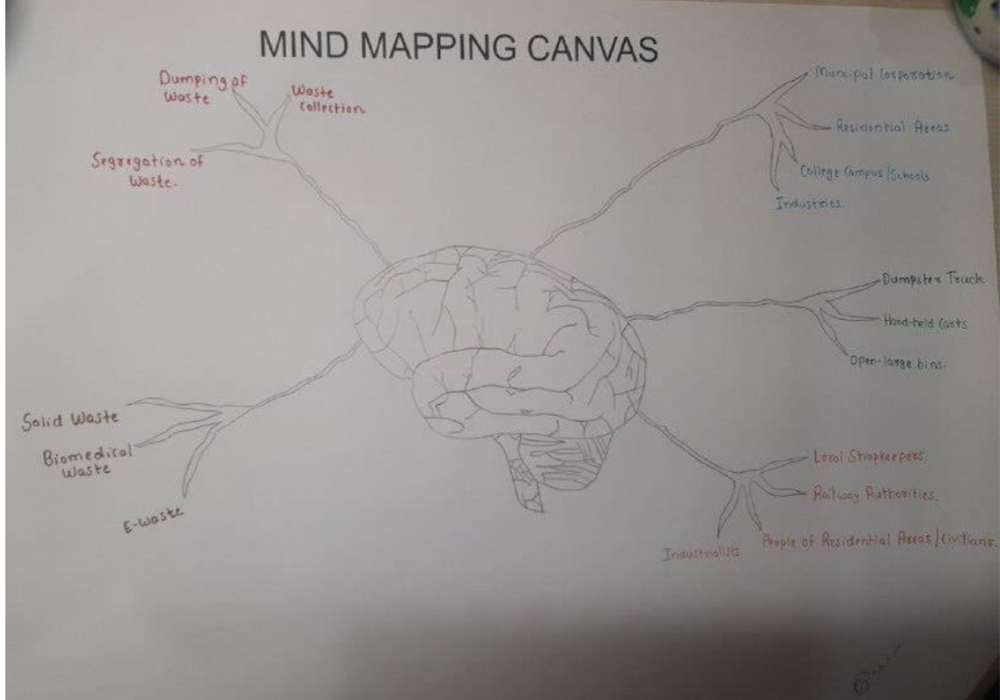 MIND MAPPING CANVAS
Dumping of
Waste
Waste
Collection
Segregation of
Waste.
Muncipal Corporation
Residential Areas
College Campus/Schools
Industries.
Dumpster Truck
Hand-held Carts
Open-large bins.
Solid Waste
Biomedical
Waste
E-Waste
Local Shopkeepers
Railway Authorities.
People of Residential Areas/Civilians.
Industrialists